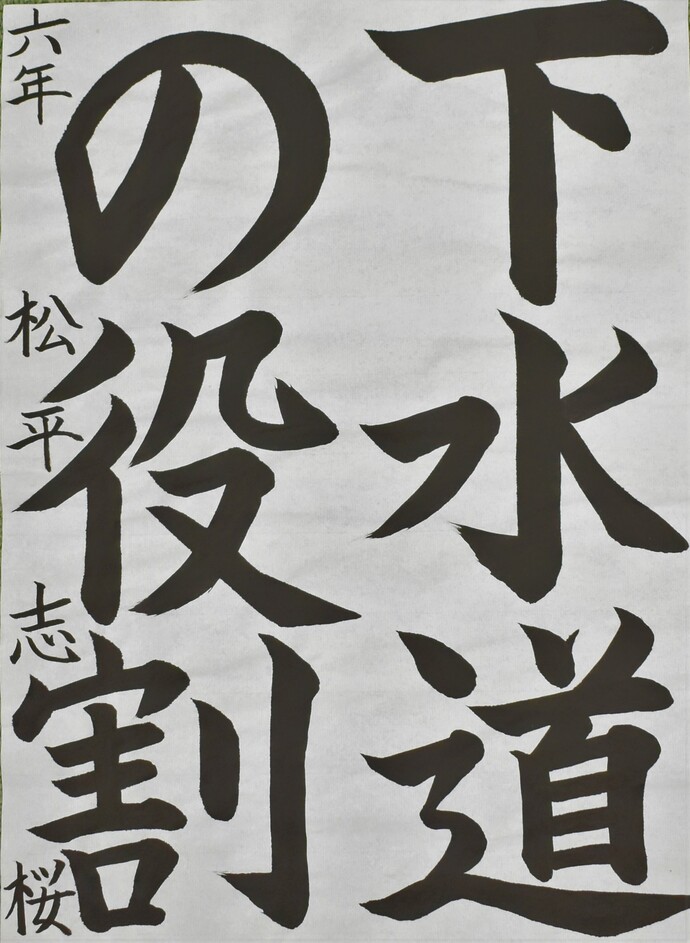 下水道
の役割
六年 松平 志桜